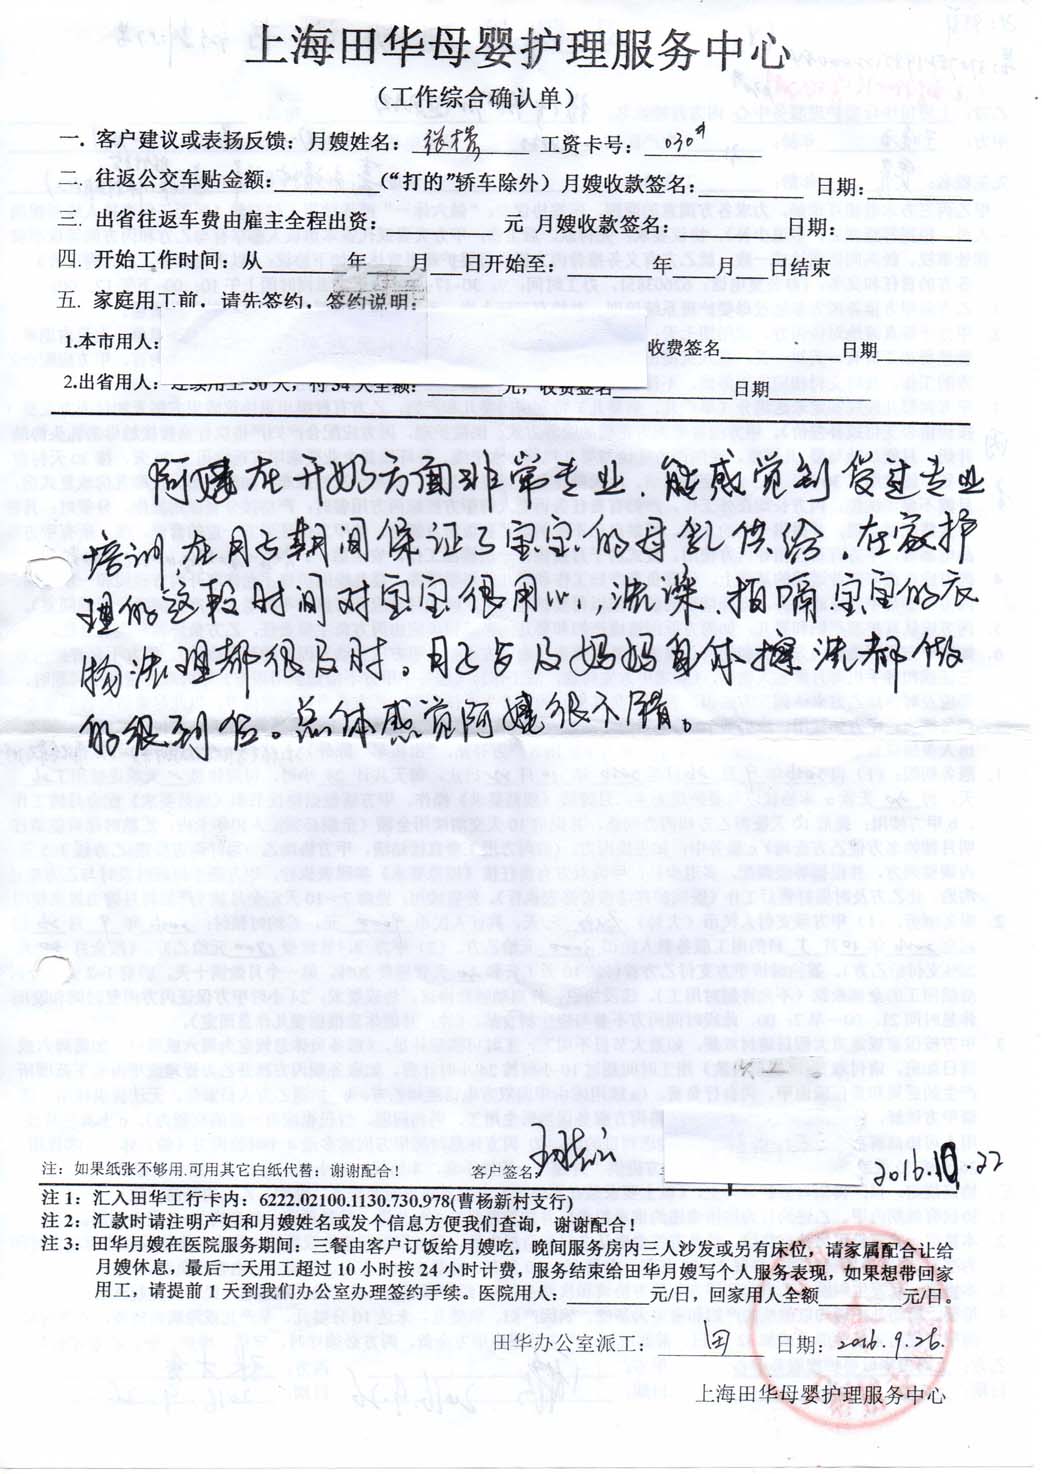 上海田华母婴护理服务中心
（工作综合确认单）
一. 客户建议或表扬反馈：月嫂姓名： 工资卡号：030
二. 往返公交车贴金额： （“打的”轿车除外）月嫂收款签名： 日期：
三. 出省往返车费由雇主全程出资： 元 月嫂收款签名： 日期：
四. 开始工作时间：从 年 月 日开始至： 年 月 日结束
五. 家庭用工前，请先签约，签约说明：
1.本市用人： 收费签名 日期
2.出省用人：连续用工30天，付34天全额： 元，收费签名 日期
阿姨在开奶方面非常专业 能感觉到受过专业
培训 在月子期间保证了宝宝的母乳供给. 在家护
理的这段时间对宝宝很用心. 洗澡 拍隔 宝宝的衣
物清理都很及时. 月子 及妈妈身体擦洗都做
的很到位。总体感觉阿姨很不错。
注：如果纸张不够用.可用其它白纸代替：谢谢配合！ 客户签名： 2016.10.22
注 1：汇入田华工行卡内：6222.02100.1130.730.978(曹杨新村支行)
注 2：汇款时请注明产妇和月嫂姓名或发个信息方便我们查询，谢谢配合！
注 3：田华月嫂在医院服务期间：三餐由客户订饭给月嫂吃，晚间服务房内三人沙发或另有床位，请家属配合让给
月嫂休息，最后一天用工超过 10 小时按 24 小时计费，服务结束给田华月嫂写个人服务表现，如果想带回家
用工，请提前 1 天到我们办公室办理签约手续。医院用人： 元/日，回家用人全额 元/日。
田华办公室派工： 田 日期：2016.9.26.
上海田华母婴护理服务中心